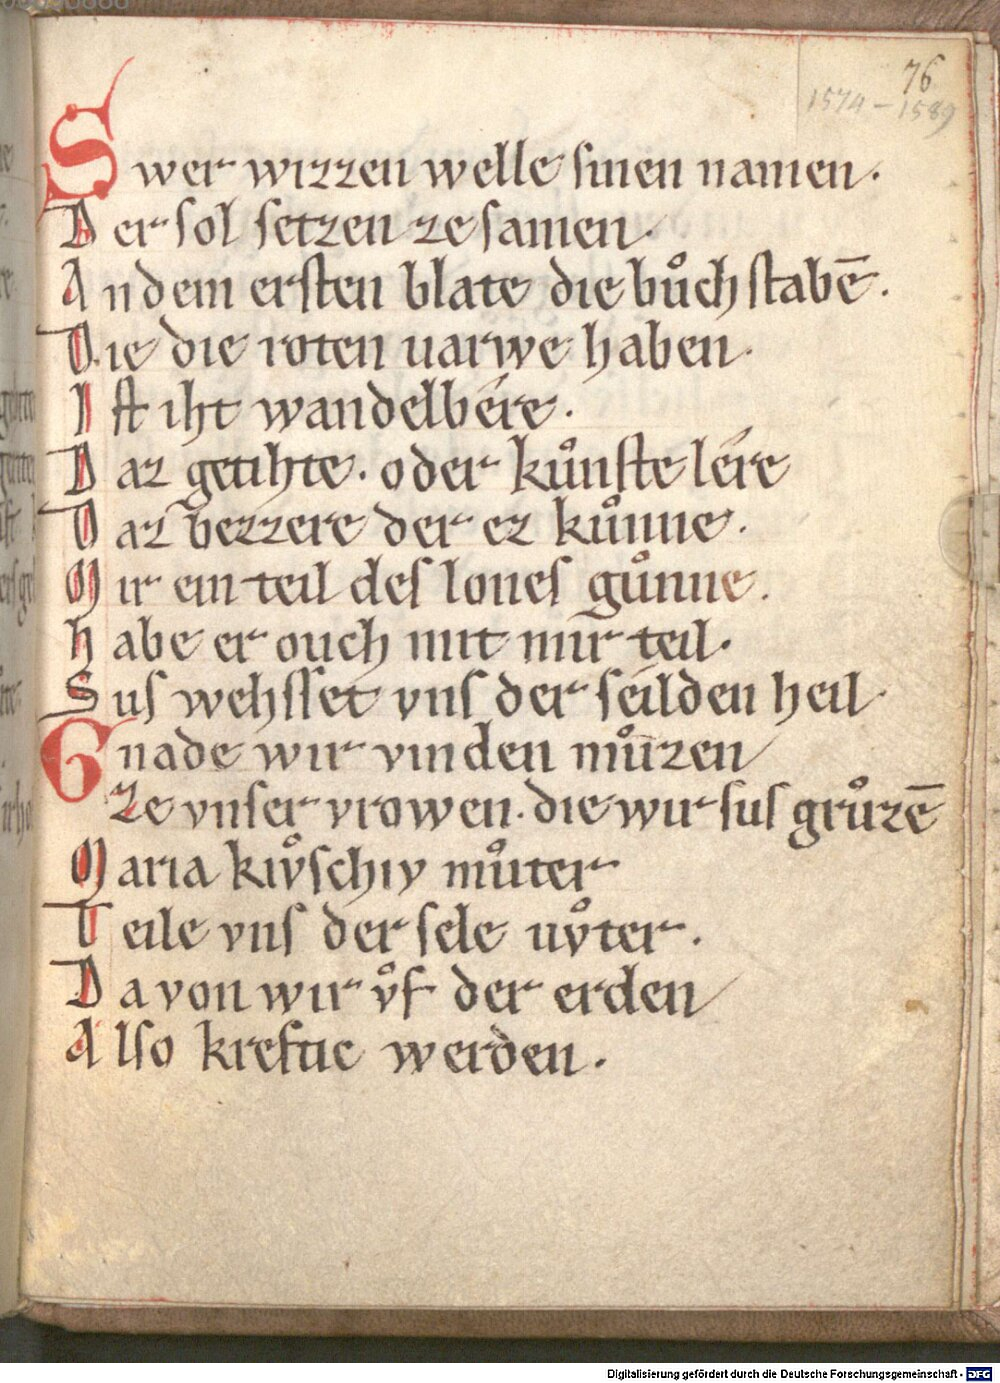 76
1574 – 1589
Swer wizzen welle sinen namen.
Der sol setzen ze samen.
An dem ersten blate die bůch stabē.
Die die roten uarwe haben.
Ist iht wandelbére.
Daz getihte. oder kůnste lére
Daz bezzere der ez kůnne.
Mir ein teil des lones gůnne.
habe er ouch mit mir teil.
Sus wehsset vns der séilden heil.
Gnade wir vinden můzen
Ze vnser vrowen. die wir sus grůzē
Maria kiv̊schiv můter
Teile vns der sele uv̊ter.
Da von wir v̊f der erden
Also kreftic werden.
Digitalisierung gefördert durch die Deutsche Forschungsgemeinschaft - DFG